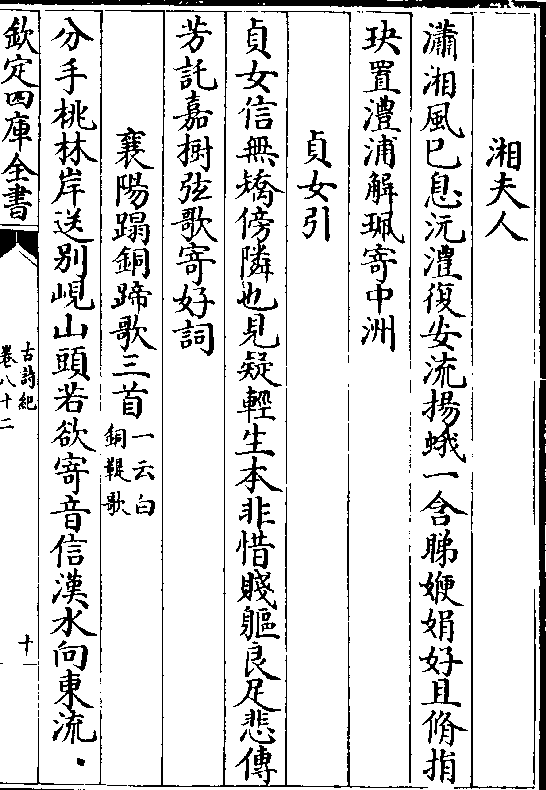 湘夫人
瀟湘風已息沅澧復安流揚蛾一含睇㛹娟好且脩指
玦置澧浦解珮寄中洲
貞女引
貞女信無矯傍隣也見疑輕生本非惜賤軀良足悲傳
芳託嘉樹弦歌寄好詞
襄陽蹋銅蹄歌三首 一云白
銅鞮歌
分手桃林岸送別峴山頭若欲寄音信漢水向東流
欽定四庫全書
古詩紀
卷八十二
十一